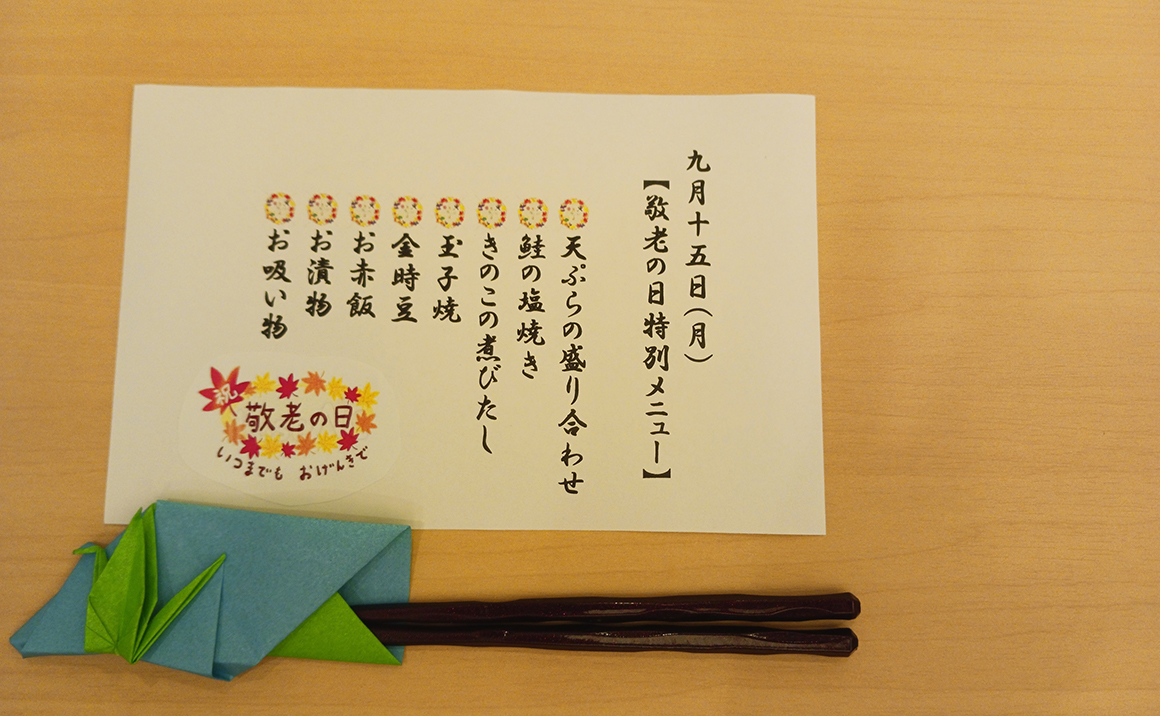 九月十五日(月)
【敬老の日特別メニュー】
天ぷらの盛り合わせ
鮭の塩焼き
きのこの煮びたし
玉子焼
金時豆
お赤飯
お漬物
お吸い物
祝
敬老の日
いつまでも おげんきで